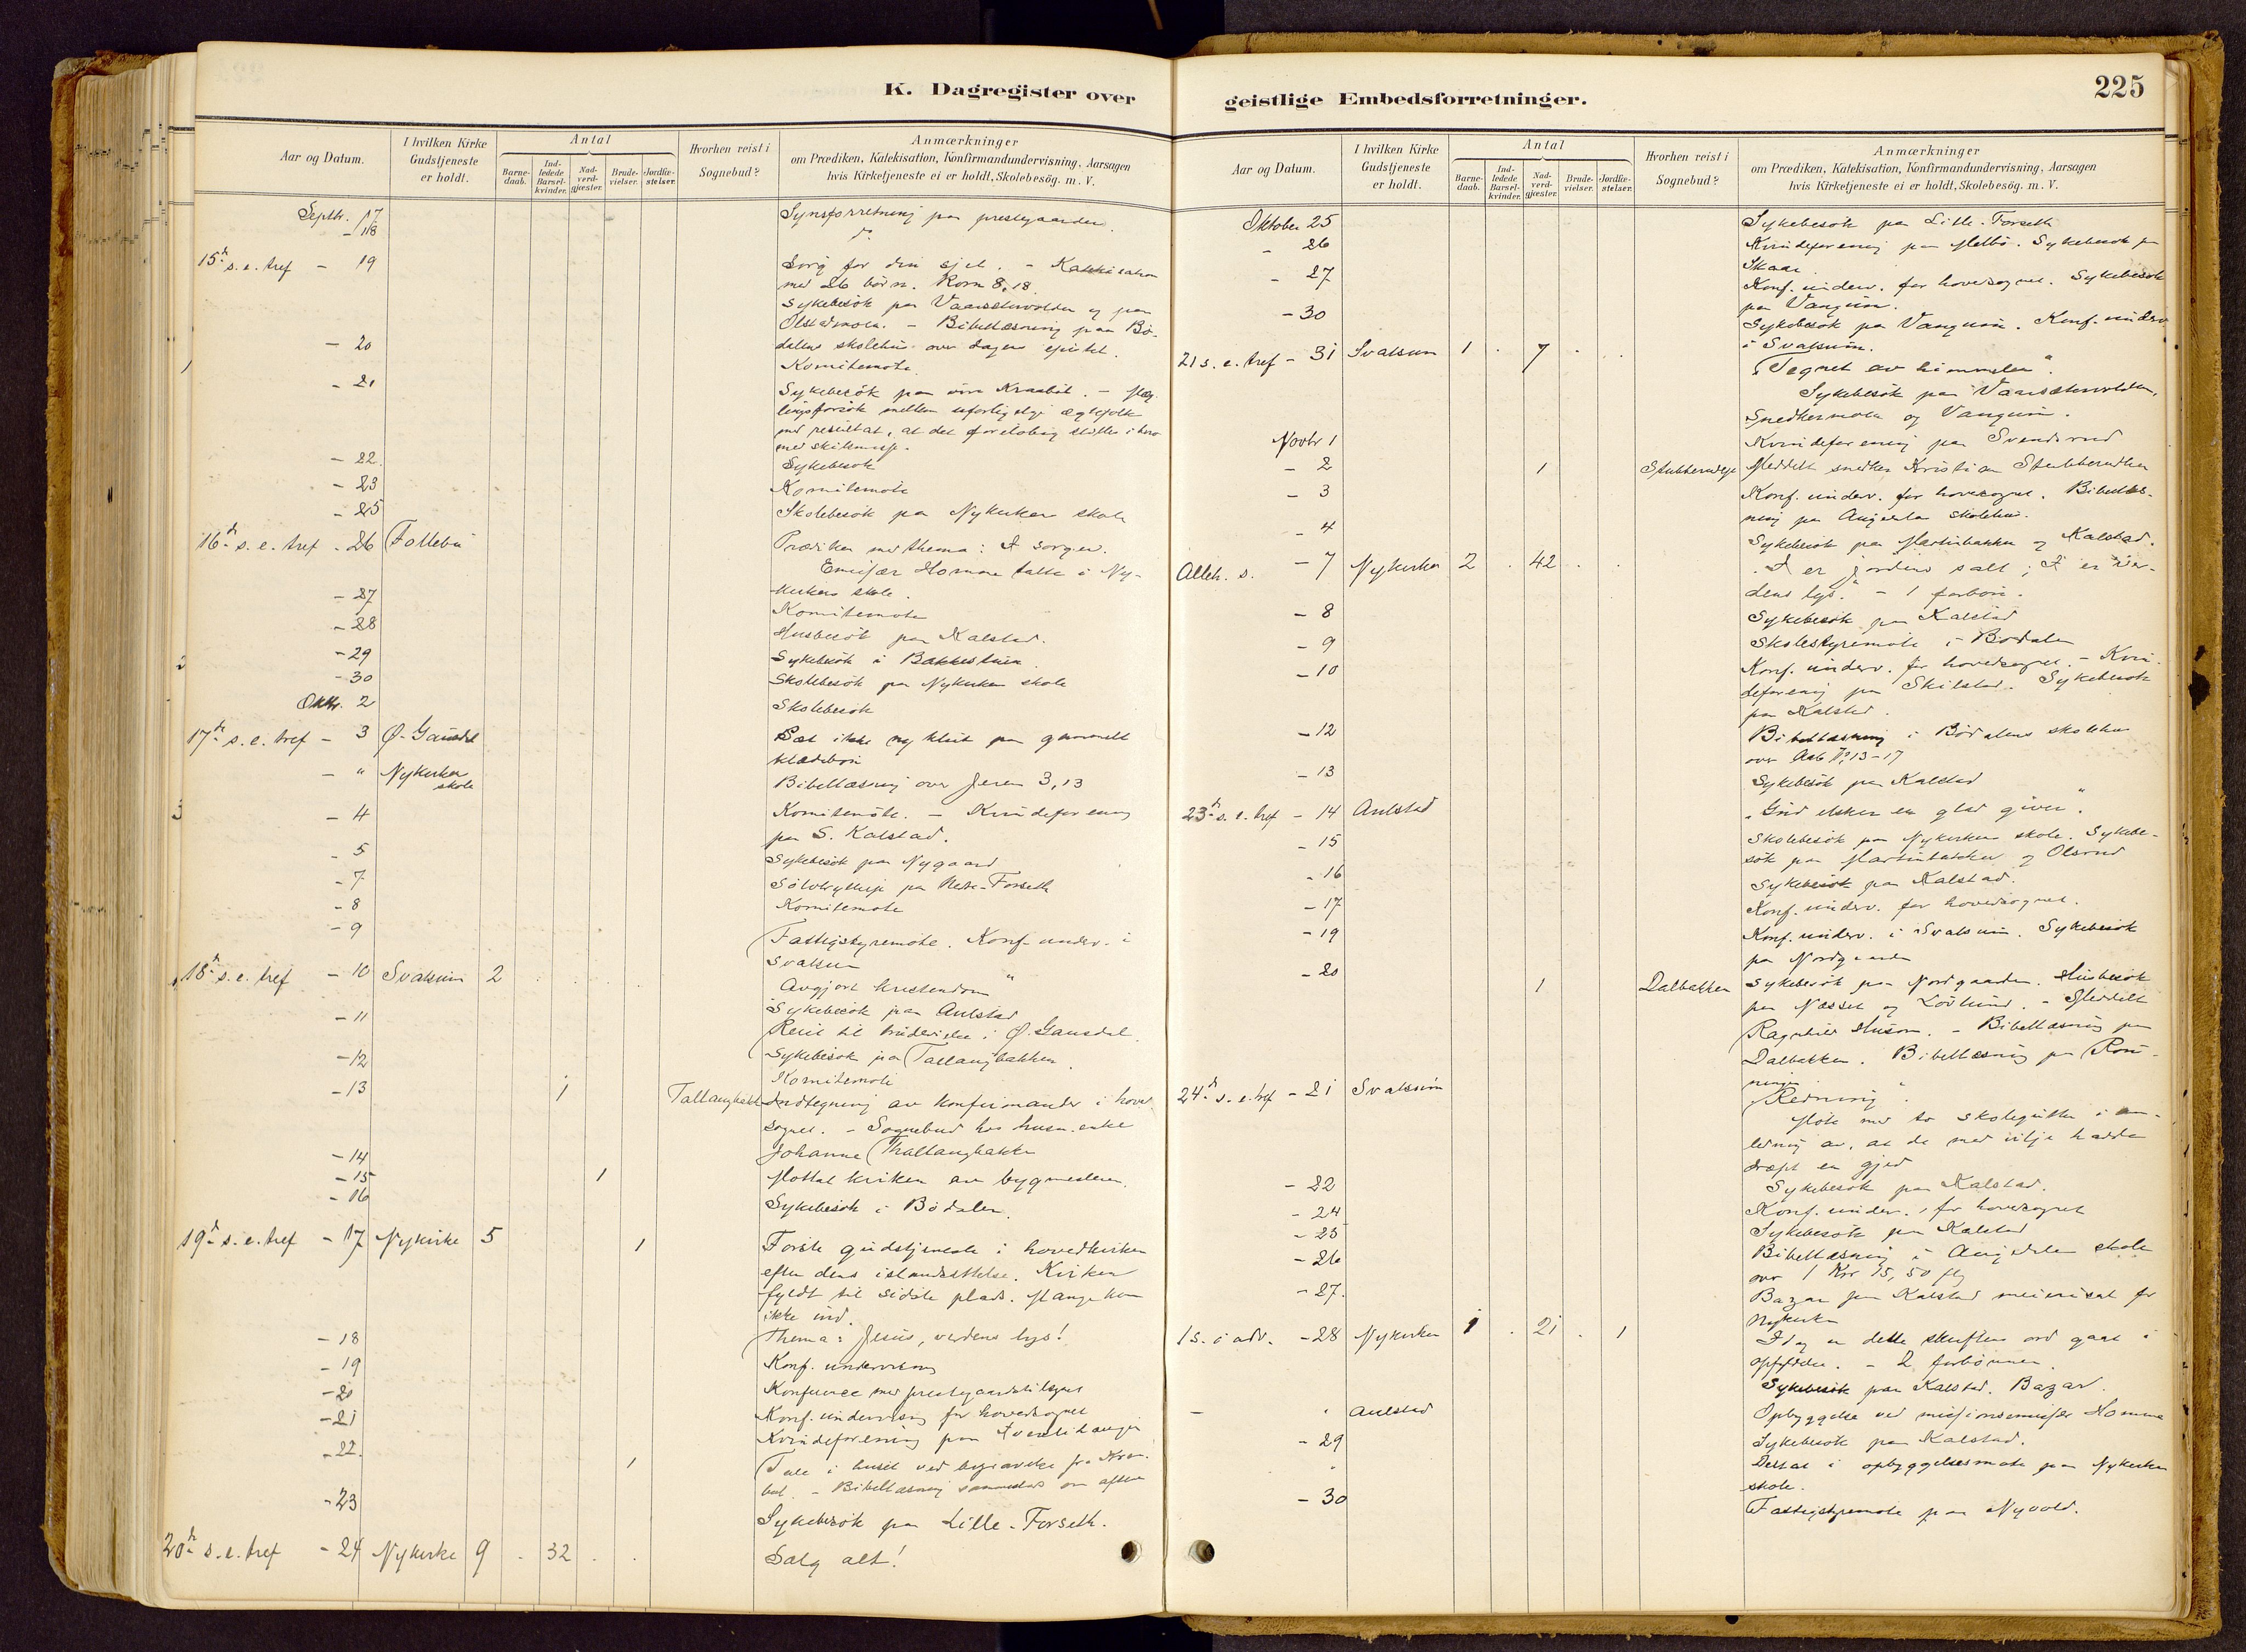 K. Dagregister over
Aar og Datum.
I hvilken Kirke Gudstjeneste er holdt.
Antal
Barnedaab.
Indledede Barselkvinder.
Nadverdgjester.
Brudevielser.
Jordfæstelser.
Hvorhen reist i Sognebud?
Anmærkninger
om Prædiken, Katekisation, Konfirmandundervisning, Aarsagen
hvis Kirketjeneste ei er holdt, Skolebesög. m. V.
Septbr. 17 Synsforretning paa prestegaarden.
- 18 do
15de s. e. tref - 19 Sørg for din sjel. - Katekisation
med 26 børn. Rom 8,18.
Sykebesök paa Vaarsætervolden og paa
Olstadmoen. - Bibellæsning paa Bö-
dalens skolehus over dagens epistel.
- 20 Komitemøte.
- 21 Sykebesök paa Kraaböl. - Mæg-
lingsforsök mellem uforligelige ægtefolk
med resultat, at det foreløbig stilles i bero
med skilsmisse.
- 22. Sykebesøk
- 23 Komitemøte
- 25 Skolebesøk paa Nykirken skole
16de s. e. tref - 26 Follebu Prædiken med thema: I sorgen.
Emissær Homme talte i Ny-
kirkens skole.
- 27 Komitemøte
- 28 Husbesök paa Kalstad.
- 29 Sykebesök i Bakkestuen.
- 30 Skolebesök paa Nykirken skole
Oktbr. 2 Skolebesøk
17de s. e. tref - 3 Ø. Gausdal Sæt ikke ny klut paa gammelt
klædebon
- " Nykirken skole Bibellæsning over Jerem 3,13
- 4 Komitemöte. - Kvindeforening
paa S. Kalstad.
- 5 Sykebesök paa Nygaard
- 7 Sölvbryllup paa Nedre-Forseth
- 8 Komitemøte
- 9 Fattigstyremöte. Konf. underv. i
Svatsum
18de s. e. tref - 10 Svatsum 2 Avgjort kristendom"
Sykebesök paa Aulstad
- 11 Reise til brudevielse i Ø. Gausdal.
- 12 Sykebesök paa Tallaugbakken.
Komitemöte
- 13 1 Tallaugbakken Indtegning av konfirmander i hoved-
sognet. - Sognebud hos husm. enke
Johanne Thallaugbakken
- 14
- 15 1 Mottat kirken av bygmesteren.
- 16 Sykebesök i Bödalen.
19de s. e. tref - 17 Nykirke 5 1 Første gudstjeneste i hovedkirken
efter dens istandsættelse. Kirken
fyldt til sidste plads. Mange kom
ikke ind.
Thema: Jesus, verdens lys!
- 18 Konf. undervisning
- 19 Konference med prestegaardstilsynet
- 20 Konf. undervisning for hovedsognet
- 21 Kvindeforening paa
- 22. 1 Tale i huset ved begravelse fra Kraa-
böl. - Bibellæsning sammesteds om aftenen
- 23 Sykebesök paa Lille-Forseth.
20de s. e. tref - 24 Nykirke 9 . 32 . . Salg alt!
225
geistlige Embedsforretninger.
Aar og Datum.
I hvilken Kirke Gudstjeneste er holdt.
Antal
Barnedaab.
Indledede Barselkvinder.
Nadverdgjester.
Brudevielser.
Jordfæstelser.
Hvorhen reist i Sognebud?
Anmærkninger
om Prædiken, Katekisation, Konfirmandundervisning, Aarsagen
hvis Kirketjeneste ei er holdt, Skolebesög. m. V.
Oktober 25 Sykebesök paa Lille-Forseth
- 26 Kvindeforening paa Melbö. Sykebesök paa
Skaar
- 27 Konf. underv. for hovedsognet. Sykebesök
paa Vangum.
- 30 Sykebesøk paa Vangum. Konf. underv
i Svatsum.
21 s. e. tref - 31 Svatsum 1 . 7 . . "Tegnet av himmelen".
Sykebesök paa Vaarsætervolden,
Snedkermoen og Vangum.
Novbr 1 Kvindeforening paa Svendsrud
- 2 1 Stubberudeie Meddelt snedker Kristian Stubberudeie
- 3 Konf. underv. for hovedsognet. Bibellæs-
ning paa Augedalen skolehus.
- 4 Sykebesök paa Martinbakken og Kalstad.
Alleh. s. - 7 Nykirken 2 . 42 . . I er jordens salt; I er ver-
dens lys. - 1 forbön.
- 8 Sykebesök paa Kalstad
- 9 Skolestyremöte i Bødalen
- 10 Konf. underv. for hovedsognet. - Kvin-
deforening paa Skilstad. Sykebesök
paa Kalstad.
- 12 Bibellæsning i Bödalens skolehus
over 13-17
- 13 Sykebesök paa Kalstad
23de s. e. tref - 14 Aulstad "Gud elsker en glad giver".
- 15 Skolebesök paa Nykirken skole. Sykebe-
sök paa Martinbakken og Olsrud
- 16 Sykebesök paa Kalstad.
- 17 Konf. underv. for hovedsognet.
- 19 Konf. underv. i Svatsum. Sykebesök
paa Nordgaarden
- 20 1 Dalbakken Sykebesök paa Nordgaarden. Husbesök
paa Næsset og Lövlund. - Meddelt
Ragnhild Huson. - Bibellæsning paa
Dalbakken. Bibellæsning paa Rön-
ningen
24de s. e. tref - 21 Svatsum Redning".
Møte med to skolegutter i an-
ledning av, at de med vilje hadde
dræpt en gjed
- 22 Sykebesök paa Kalstad.
- 24 Konf. underv. for hovedsognet
- 25 Sykebesök paa Kalstad
- 26 Bibellæsning i Augedalen skole
over 1 Kor 15, 50 flg
- 27. Bazar paa Kalstad meieri for
Nykirken
1 s. i adv. - 28 Nykirken 1 . 21 . 1 Idag er dette skriftens ord gaat i
opfyldelse. - 2 forbønner.
Sykebesök paa Kalstad. Bazar.
- " Aulstad Opbyggelse ved missionsemissær Homme
- 29 Sykebesök paa Kalstad.
Deltat i opbyggelsesmøte paa Nykirken
skole.
- 30 Fattigstyremøte paa Nyvold.